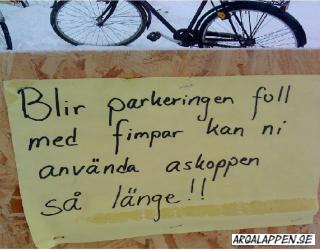 Blir parkeringen full
med fimpar kan ni
använda askoppen
så länge!!
ARGALAPPEN.SE